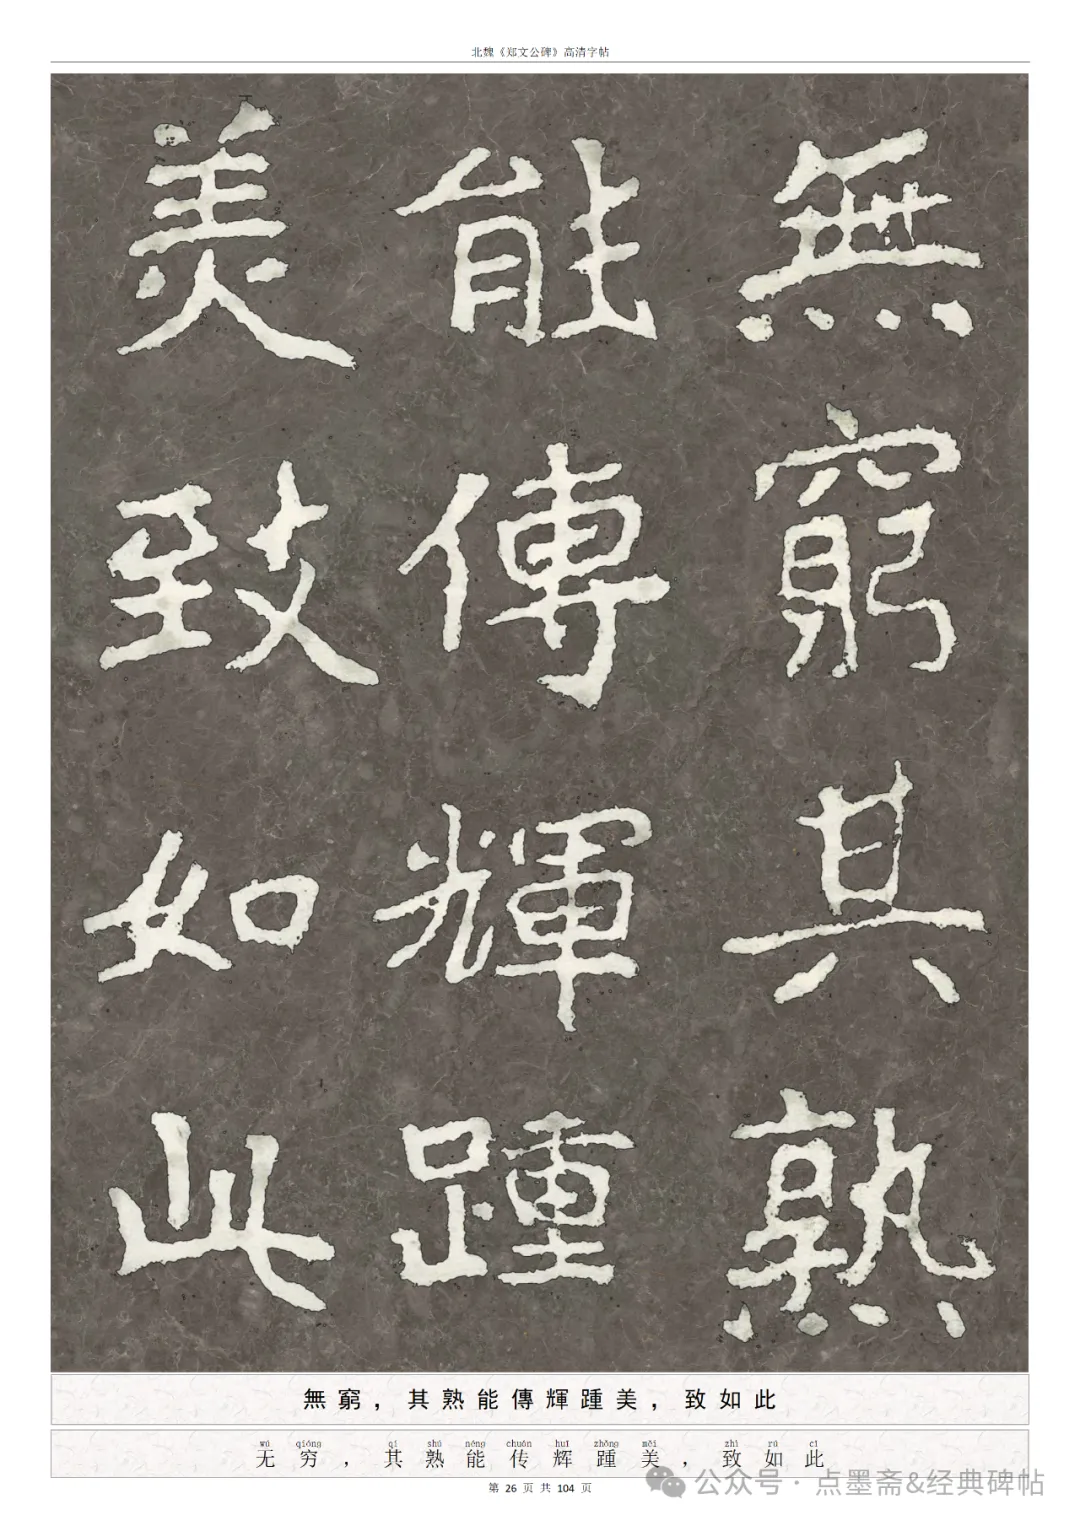 北魏《郑文公碑》高清字帖
無窮其熟
能傳輝踵
美致如此
無窮，其熟能傳輝踵美，致如此
wú qióng qí shú néng chuán huī zhǒng měi zhì rú cǐ
无穷，其熟能传辉踵美，致如此
第 26 页 共 104 页
公众号·点墨斋&经典碑帖